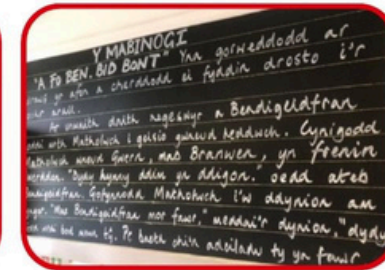 Y MABINOGI
"A FO BEN. BID BONT" Yna gorweddodd ar
yr afon a cherddodd ei fyddin drosto i'r
arall.
Ar unwaith daeth negeswyr a Bendigeidfran
wrth Matholwch i geisio gwneud heddwch. Cynigodd
Matholwch wneud Gwern, mab Branwen, yn frenin
"Dydy hynny ddim yn ddigon." oedd ateb
Bendigeidfran. Gofynnodd Matholwch i'w ddynion am
"Mae Bendigeidfran mor fawr," meddai'r dynion, "dydy
bod mewn tŷ. Pe baeth chi'n adeiladu tŷ yn fawr